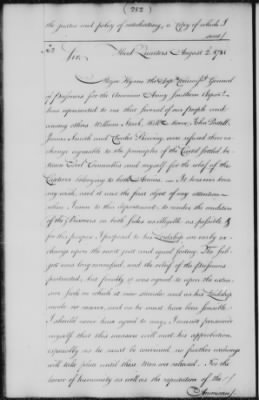 (252)
the justice and policy of retaliating, a Copy of which I
send/
No 2 Head Quarters August 2d 1781
Sir,
Major Hyrne the Dep. Commissy General
of Prisoners for the American Army Southern Department
has represented to me that several of our people and
among others William Clark, Will Stone, John Postell,
James Smith and Charles Skirving were refused their ex-
change agreeable to the principles of the Cartel settled be-
tween Cornwallis and myself for the relief of the
Captives belonging to both Armies.— It has ever been
my wish, and it was the first object of my attention
when I came to this department, to render the condition
of the Prisoners on both sides as eligible as possible &
for this purpose I proposed to his Lordship an early ex-
change upon the most just and equal footing. The
was long managed, and the relief of the
protracted, but finally it was agreed to upon the
on which it now stands and as his Lordship
made no reserve, and as he must have been sensible
I should never have agreed to any, I cannot persuade
myself that this measure will meet his approbation
especially as he must be convinced no further exchanges
will take place until these Men are released. For the
honor of humanity as well as the reputation of the /
American/